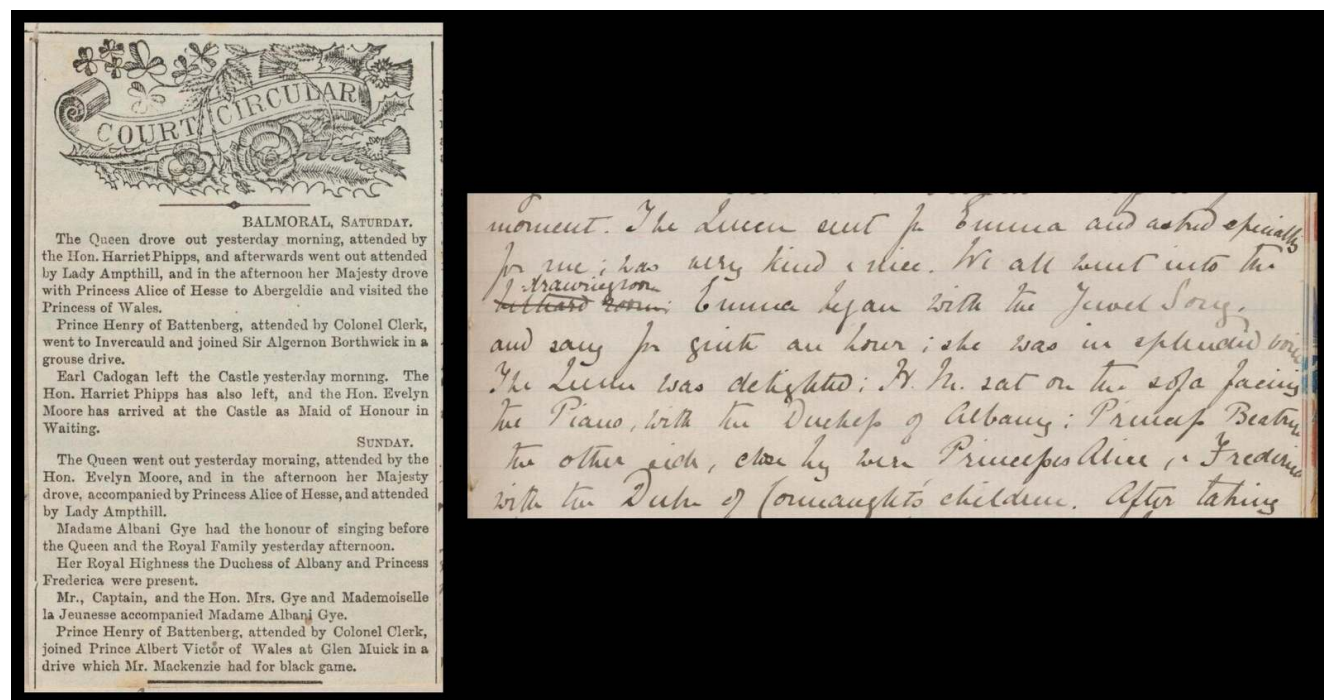 COURT CIRCULAR
BALMORAL, SATURDAY.
The Queen drove out yesterday morning, attended by
the Hon. Harriet Phipps, and afterwards went out attended
by Lady Ampthill, and in the afternoon her Majesty drove
with Princess Alice of Hesse to Abergeldie and visited the
Princess of Wales.
Prince Henry of Battenberg, attended by Colonel Clerk,
went to Invercauld and joined Sir Algernon Borthwick in a
grouse drive.
Earl Cadogan left the Castle yesterday morning. The
Hon. Harriet Phipps has also left, and the Hon. Evelyn
Moore has arrived at the Castle as Maid of Honour in
Waiting.
SUNDAY.
The Queen went out yesterday morning, attended by the
Hon. Evelyn Moore, and in the afternoon her Majesty
drove, accompanied by Princess Alice of Hesse, and attended
by Lady Ampthill.
Madame Albani Gye had the honour of singing before
the Queen and the Royal Family yesterday afternoon.
Her Royal Highness the Duchess of Albany and Princess
Frederica were present.
Mr., Captain, and the Hon. Mrs. Gye and Mademoiselle
la Jeunesse accompanied Madame Albani Gye.
Prince Henry of Battenberg, attended by Colonel Clerk,
joined Prince Albert Victor of Wales at Glen Muick in a
drive which Mr. Mackenzie had for black game.
moment. The Queen sent for Emma and asked specially
for me; was very kind & nice. We all went into the
drawingroom
billiard room; Emma began with the Jewel Song,
and sang for quite an hour; she was in splendid voice
The Queen was delighted; H. M. sat on the sofa facing
the Piano, with the Duchess of Albany; Princess Beatrice
the other side, close by were Princesses Alice, & Frederica
with the Duke of Connaught's children. After taking